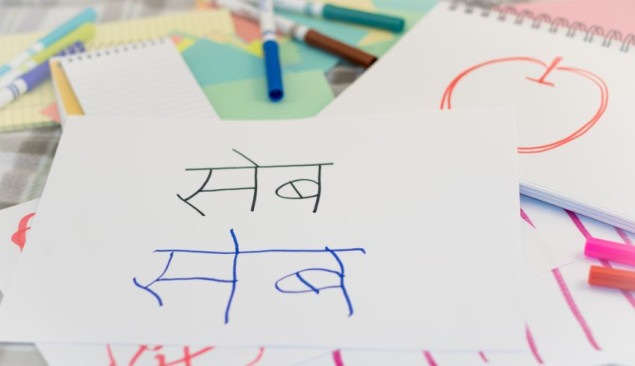 सेब
सेब